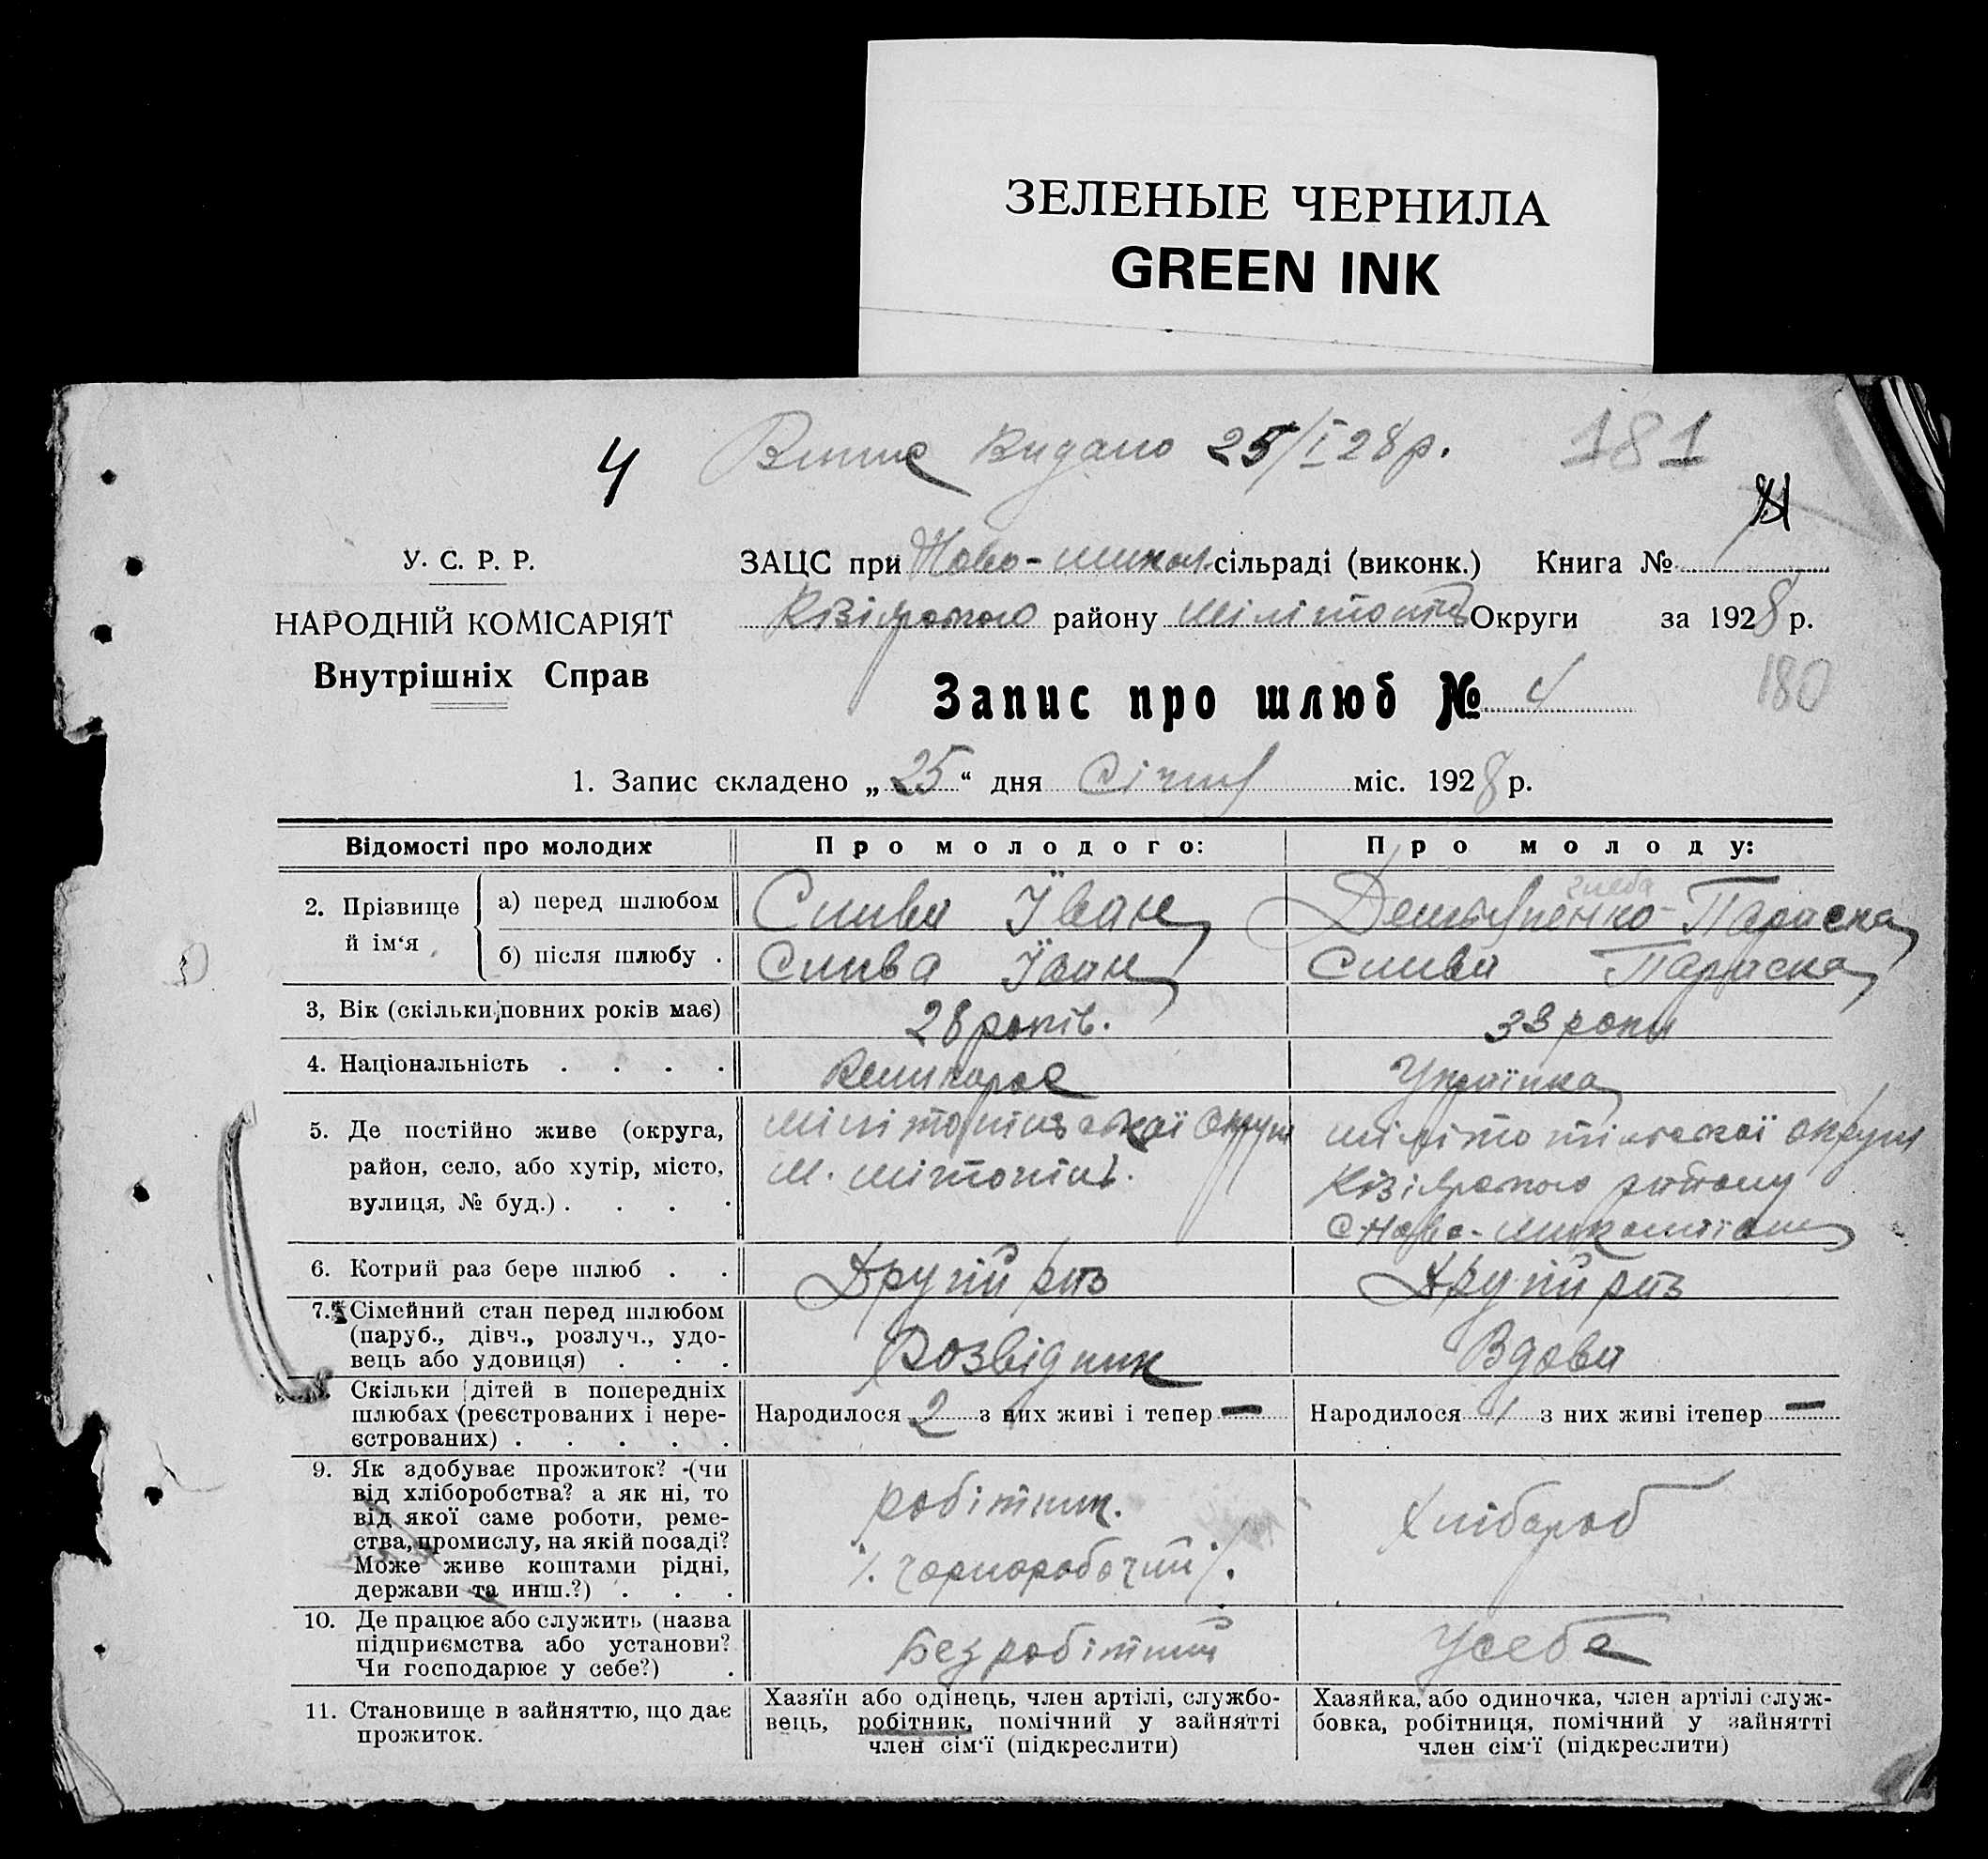 ЗЕЛЕНЫЕ ЧЕРНИЛА
GREEN INK
4 Видано 25/I 28 р. 181
У. С. Р. Р.
ЗАЦС при Ново-микол. сільраді (виконк.) Книга №
НАРОДНІЙ КОМІСАРІЯТ
району Округи за 1928 р.
Внутрішніх Справ
180
Запис про шлюб № 4
1. Запис складено „25“ дня Січня міс. 1928 р.
Відомості про молодих
Про молодого:
Про молоду:
2. Прізвище й ім‘я
а) перед шлюбом
Слива Їван
Параска
б) після шлюбу .
Слива Їван
Слива Параска
3, Вік (скільки повних років має)
28 років.
33 роки
4. Національність . . . .
Українка
5. Де постійно живе (округа,
район, село, або хутір, місто,
вулиця, № буд.) . . . .
округи
М.
округи
району
с.
6. Котрий раз бере шлюб . .
Другий раз
Другий раз
7. Сімейний стан перед шлюбом
(паруб., дівч., розлуч., удо-
вець або удовиця) . . .
Розвідник
Вдова
Скільки дітей в попередніх
шлюбах (реєстрованих і нере-
єстрованих) . . . . .
Народилося 2 з них живі і тепер —
Народилося 1 з них живі ітепер —
9. Як здобуває прожиток? (чи
від хліборобства? а як ні, то
від якої саме роботи, реме-
ства, промислу, на якій посаді?
Може живе коштами рідні,
держави та инш.?) . . .
робітник.
/. чорноробочий /.
Хлібороб
10. Де працює або служить (назва
підприємства або установи?
Чи господарює у себе?) .
Безробітний
Усебе
11. Становище в зайняттю, що дає
прожиток.
Хазяїн або одінець, член артілі, службо-
вець, робітник, помічний у зайнятті
член сім‘ї (підкреслити)
Хазяйка, або одиночка, член артілі служ-
бовка, робітниця, помічний у зайнятті
член сім‘ї (підкреслити)